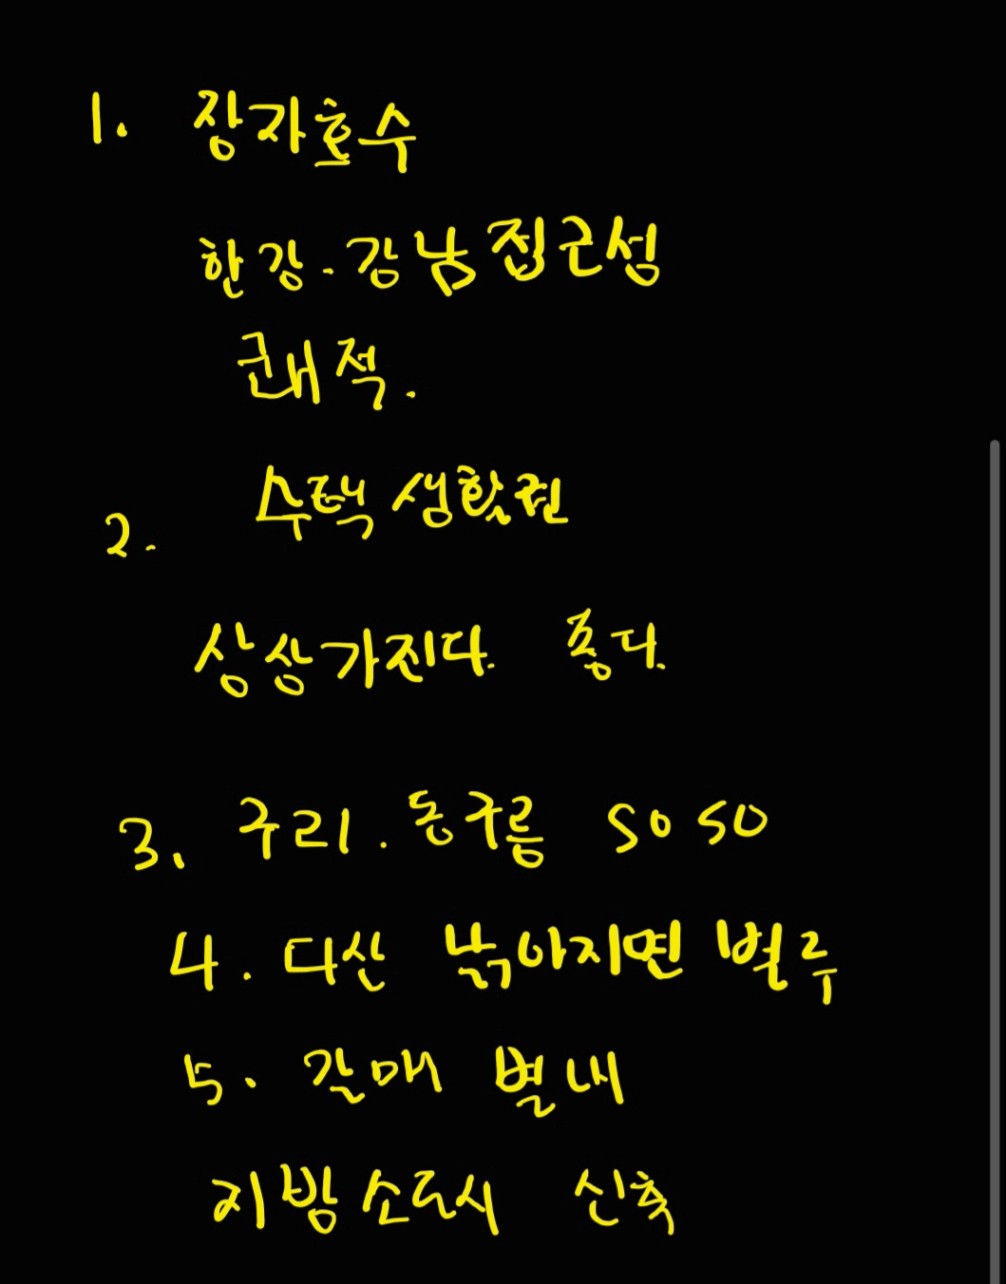 1. 장자호수
한강.강남 접근성
쾌적.
2. 수택 생활권
상상가진다. 좋다.
3. 구리.동구릉 soso
4. 다산 낡아지면 별루
5. 갈매 별내
지방소도시 신축